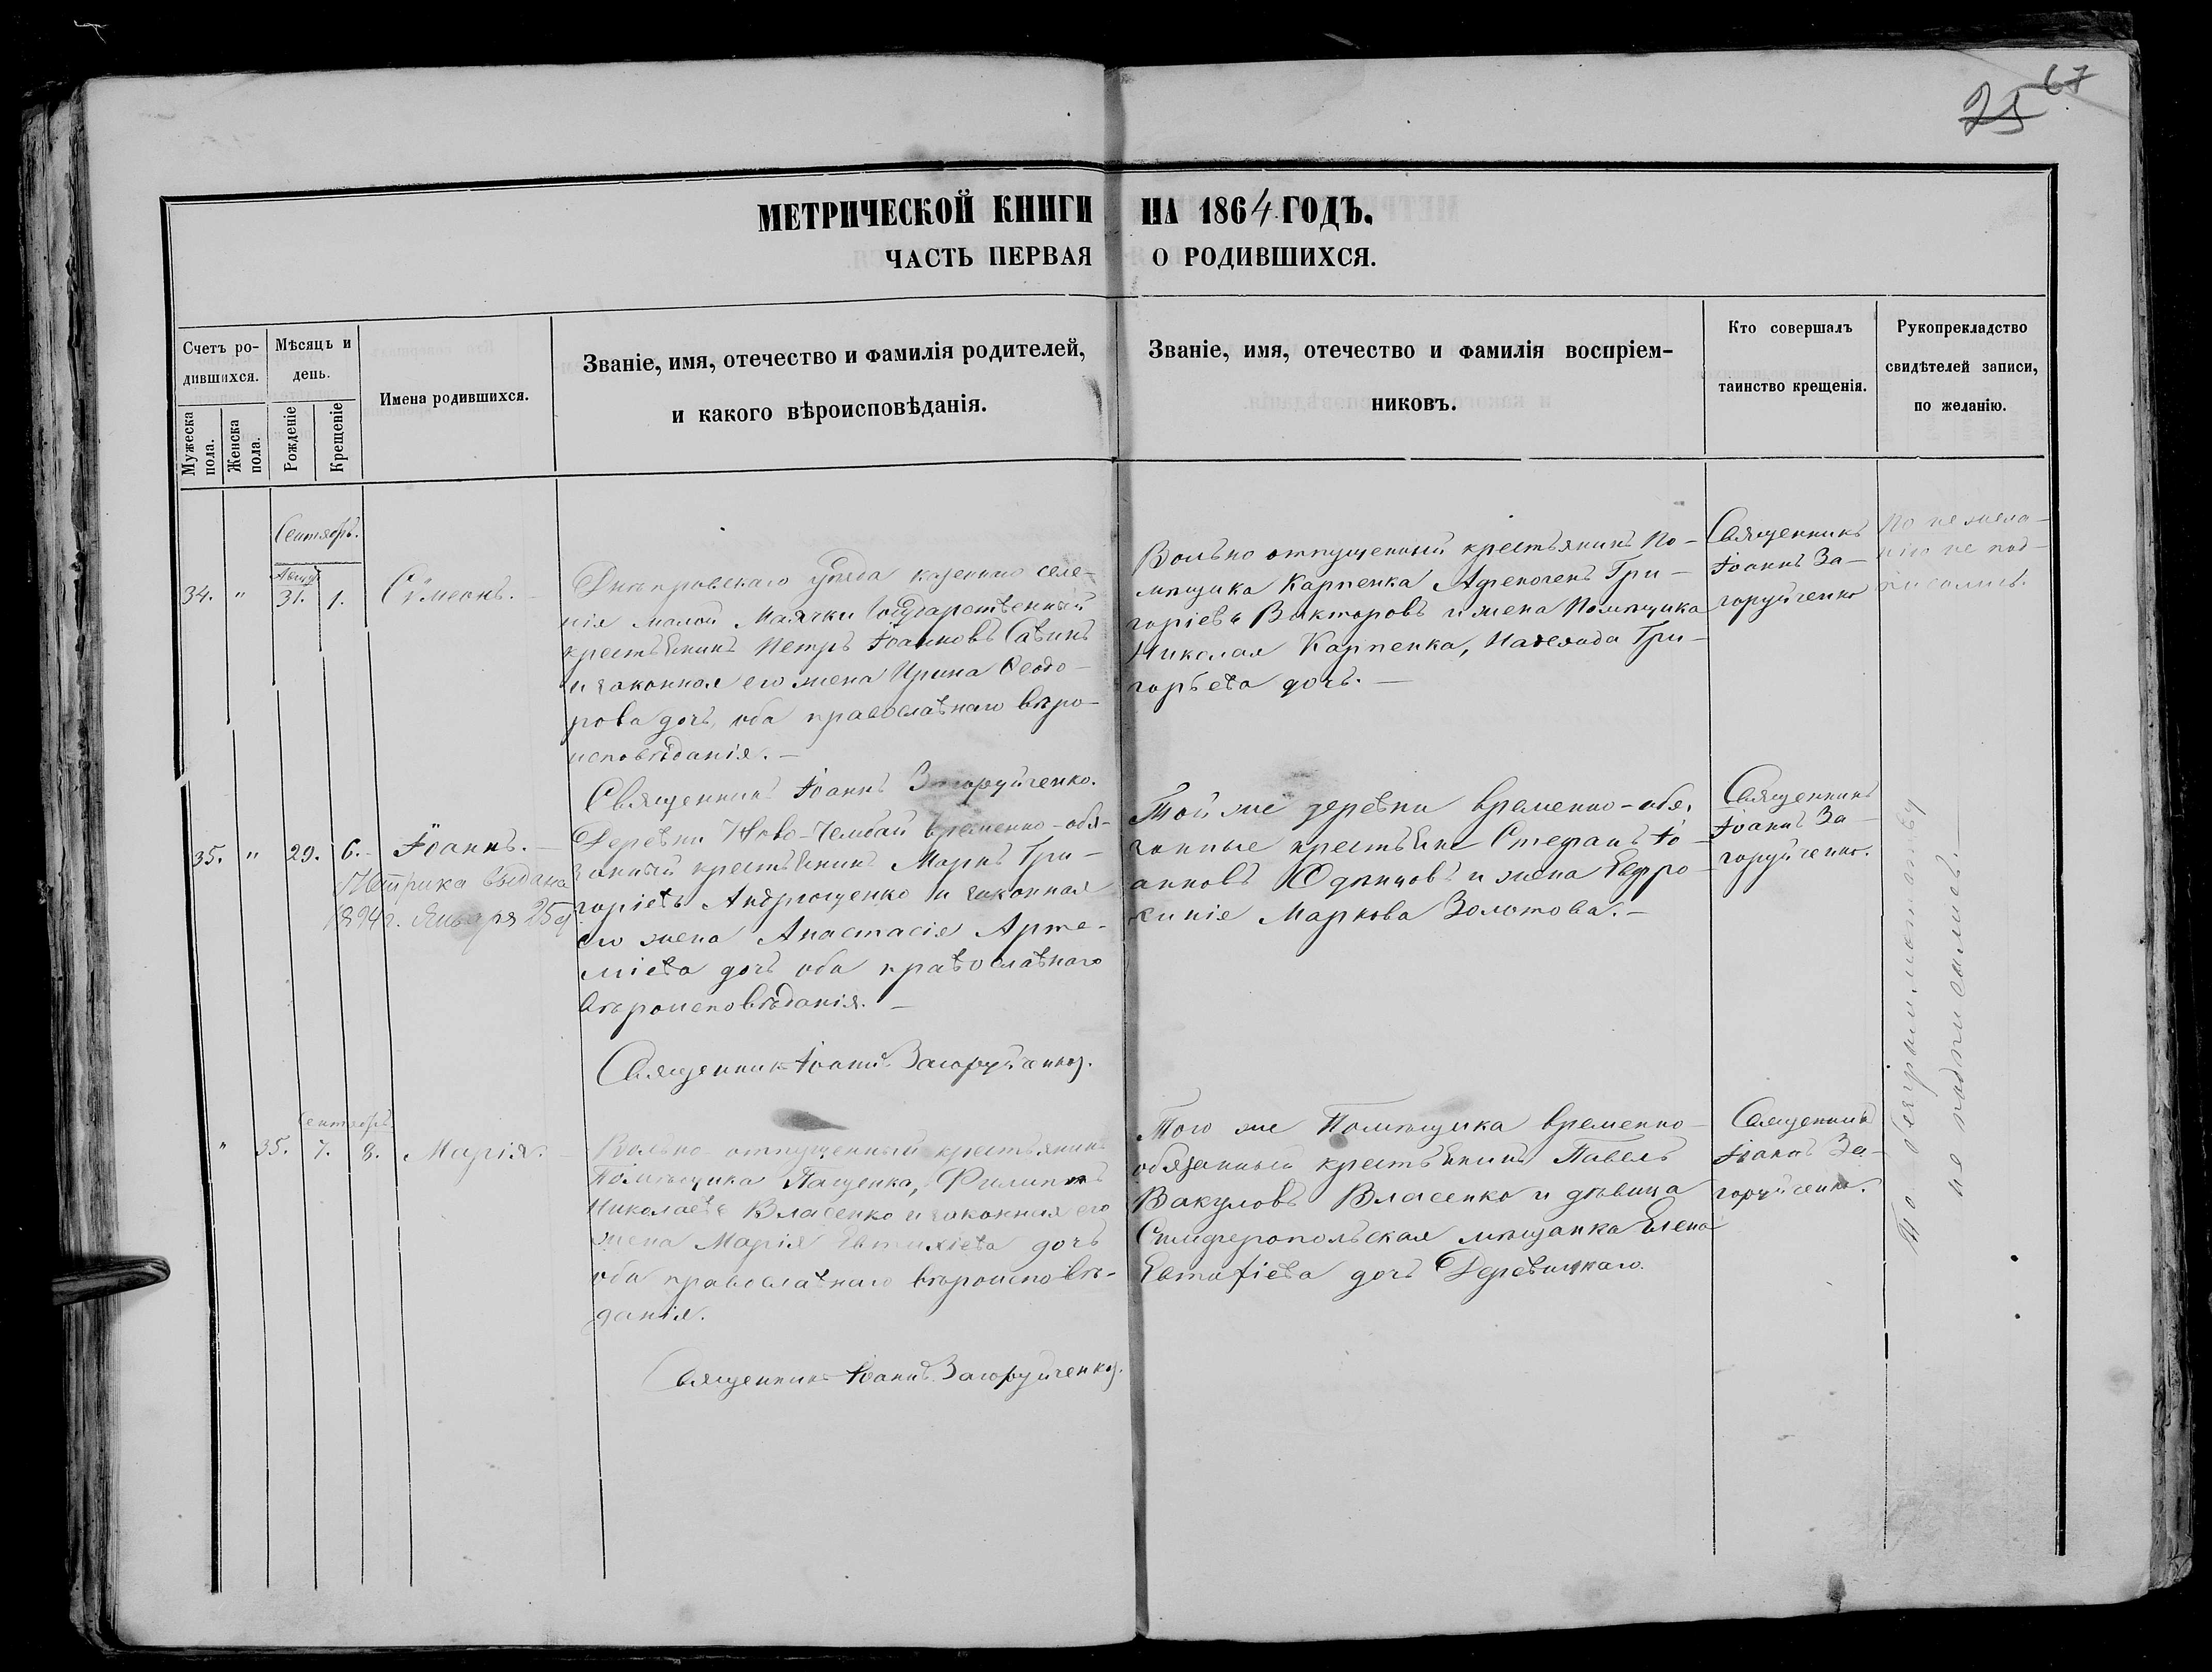 67
25
МЕТРИЧЕСКОЙ КНИГИ НА 1864 ГОДЪ.
ЧАСТЬ ПЕРВАЯ О РОДИВШИХСЯ.
Счетъ ро-
дившихся.
Мужеска
пола.
Женска
пола.
Мѣсяцъ и
день.
Рожденіе
Крещеніе
Имена родившихся.
Званіе, имя, отечество и фамилія родителей,
и какого вѣроисповѣданія.
Званіе, имя, отечество и фамилія воспріем-
никовъ.
Кто совершалъ
таинство крещенія.
Рукоприкладство
свидѣтелей записи,
по желанію.
Сентябрь.
Авгус.
34. " 31. 1. Сѵмеонъ.
Днѣпровскаго уѣзда казеннаго селе-
нія малой Маячки Государственный
крестьянинъ Петръ Іоанновъ Савинъ
и законная его жена Ирина Ѳеодо-
рова дочь, оба православнаго вѣро-
исповѣданія. —
Священникъ Іоаннъ Загоруйченко.
Вольно отпущенный крестьянинъ По-
мѣщика Карпенка Гри-
горіевъ Викторовъ и жена Помѣщика
Николая Карпенка, Надежда Гри-
горьева дочь. —
Священникъ
Іоаннъ За-
горуйченко
По не жела-
нію не под-
писались.
35. " 29. 6. Іоаннъ. —
Метрика выдана
1894 г. Января 25 д
Деревни Ново-Чембай временно-обя-
занный крестьянинъ Маркъ Гри-
горіевъ Андрющенко и законная
его жена Анастасія Арте-
міева дочь оба православнаго
вѣроисповѣданія. —
Священникъ Іоаннъ Загоруйченко.
Той же деревни временно-обя-
занные крестьяне Стефанъ Іо-
анновъ Одинцовъ и жена Евфро-
синія Маркова Золотова. —
Священникъ
Іоаннъ За-
горуйченко.
По безграмотству
не подписались. —
Сентябрь
" 35. 7. 8. Марія.
Вольно-отпущенный крестьянинъ
Помѣщика Пащенка, Филиппъ
Николаевъ Власенко и законная его
жена Марія Евтихіева дочь
оба православнаго вѣроисповѣ-
данія.
Священникъ Іоаннъ Загоруйченко.
Того же Помѣщика временно-
обязанный крестьянинъ Павелъ
Вакуловъ Власенко и дѣвица
Симферопольская мѣщанка Елена
Евтафіева дочь Деревицкаго.
Священникъ
Іоаннъ За-
горуйченко.